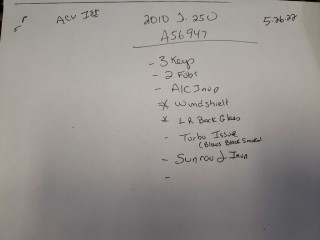 ACV
2010 J. 250
5.26.22
A56947
- 3 Keys
- 2 Fobs
- A/C Inop
* Windshielt
* L R Back Glass
- Turbo Issue
(Blows Black Smoke)
- Sunroof Inop
-